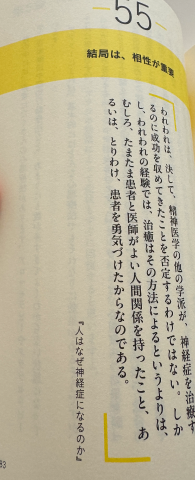 55
結局は、相性が重要
われわれは、決して、精神医学の他の学派が、神経症を治療す
るのに成功を収めてきたことを否定するわけではない。しか
し、われわれの経験では、治癒はその方法によるというよりは、
むしろ、たまたま患者と医師がよい人間関係を持ったこと、あ
るいは、とりわけ、患者を勇気づけたからなのである。
『人はなぜ神経症になるのか』